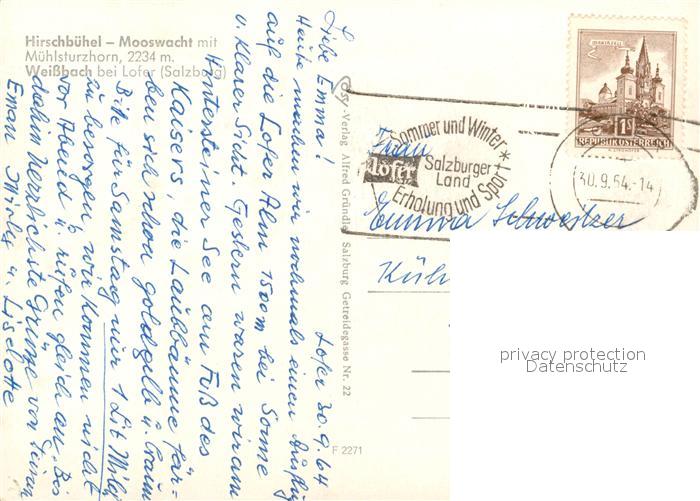 Hirschbühel – Mooswacht mit
Mühlsturzhorn, 2234 m.
Weißbach bei Lofer (Salzburg)
Lofer 30.9.64
Liebe Emma!
Heute machen wir nochmals einen Ausflug
auf die Lofer Alm 1500 m bei Sonne
u. klarer Sicht. Gestern waren wir am
Hintersteiner See am Fuß des
Kaisers, die Laubbäume fär-
ben sich schon goldgelb u. braun
Bitte für Samstag nur 1 Lit Milch
zu besorgen, wir kommen nicht
vor Abend u. rufen gleich an. Bis
dahin herrlichste Grüße von Deinen
u. Liselotte
Cosy-Verlag Alfred Gründler Salzburg Getreidegasse Nr. 22
F 2271
Sommer und Winter
lofer
Salzburger
Land
Erholung und Sport
MARIAZELL
1S
REPUBLIK ÖSTERREICH
30.9.64.-14
Frau
Emma Schweitzer
Küh
privacy protection
Datenschutz